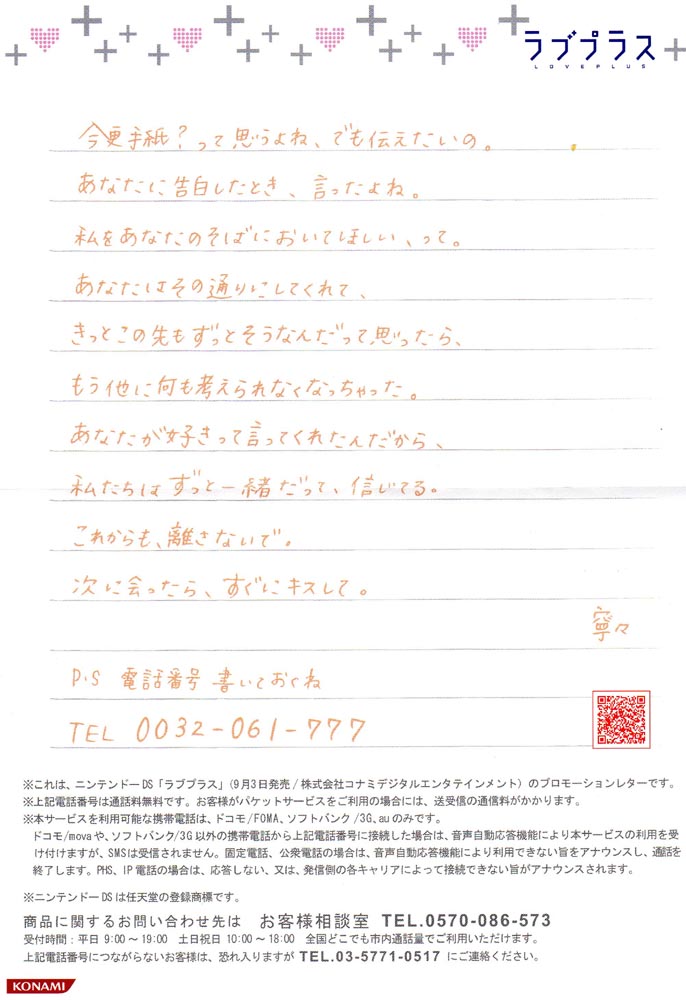 ラブプラス
LOVEPLUS
今更手紙?って思うよね、でも伝えたいの。
あなたに告白したとき、言ったよね。
私をあなたのそばにおいてほしい、って。
あなたはその通りにしてくれて、
きっとこの先もずっとそうなんだって思ったら、
もう他に何も考えられなくなっちゃった。
あなたが好きって言ってくれたんだから、
私たちはずっと一緒だって、信じてる。
これからも、離さないで。
次に会ったら、すぐにキスして。
寧々
P.S 電話番号書いておくね
TEL 0032-061-777
※これは、ニンテンドーDS「ラブプラス」(9月3日発売/株式会社コナミデジタルエンタテインメント)のプロモーションレターです。
※上記電話番号は通話料無料です。お客様がパケットサービスをご利用の場合には、送受信の通信料がかかります。
※本サービスを利用可能な携帯電話は、ドコモ/FOMA、ソフトバンク/3G、auのみです。
ドコモ/movaや、ソフトバンク/3G以外の携帯電話から上記電話番号に接続した場合は、音声自動応答機能により本サービスの利用を受
け付けますが、SMSは受信されません。固定電話、公衆電話の場合は、音声自動応答機能により利用できない旨をアナウンスし、通話を
終了します。PHS、IP電話の場合は、応答しない、又は、発信側の各キャリアによって接続できない旨がアナウンスされます。
※ニンテンドーDSは任天堂の登録商標です。
商品に関するお問い合わせ先は お客様相談室 TEL.0570-086-573
受付時間:平日9:00~19:00 土日祝日10:00~18:00 全国どこでも市内通話量でご利用いただけます。
上記電話番号につながらないお客様は、恐れ入りますがTEL.03-5771-0517にご連絡ください。
KONAMI